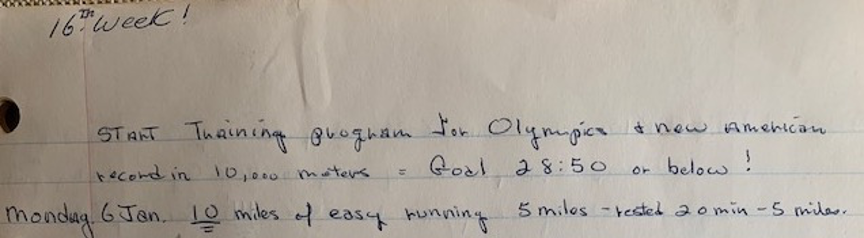 16TH Week!
START Training program for Olympics & new American
record in 10,000 meters = Goal 28:50 or below!
Monday 6 Jan. 10 miles of easy running 5 miles - rested 20 min - 5 miles.